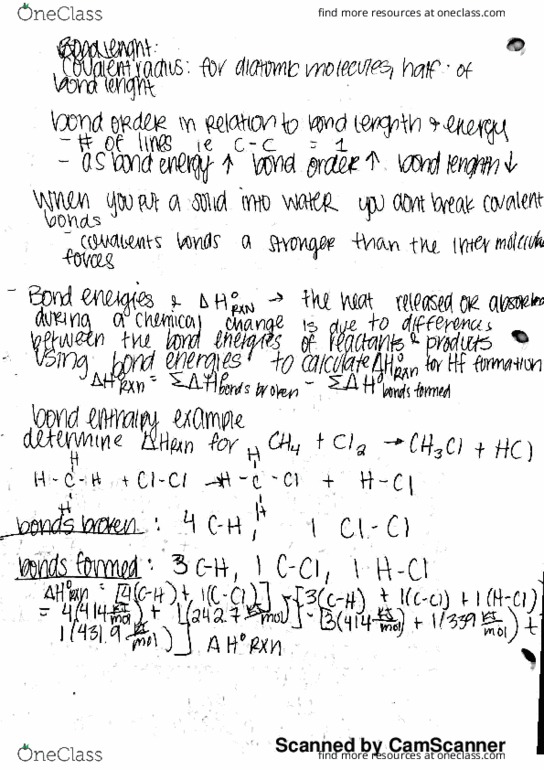 OneClass
find more resources at oneclass.com
Bond lenght:
Covalent radius: for diatomic molecules, half of
bond lenght
bond order in relation to bond lenghth & energy
- # of lines ie C-C = 1
- as bond energy ↑ bond order ↑ bond lenghth ↓
When you put a solid into water you dont break covalent
bonds
- covalents bonds a stronger than the inter molecular
forces
- Bond energies & ΔH°RXN → the heat released or absorbed
during a chemical change is due to differences
between the bond energies of reactants & products
Using bond energies to calculate ΔH°RXN for Hf formation
ΔH°RXN = ΣΔH°bonds broken - ΣΔH°bonds formed
bond enthalpy example
determine ΔHRXN for CH4 + Cl2 → CH3Cl + HCl
H H
H-C-H + Cl-Cl → H-C-Cl + H-Cl
H H
bonds broken: 4 C-H, 1 Cl-Cl
bonds formed: 3 C-H, 1 C-Cl, 1 H-Cl
ΔH°RXN = [4(C-H) + 1(C-Cl)] - [3(C-H) + 1(C-Cl) + 1(H-Cl)
= 4(414 KJ/mol) + 1(242.7 KJ/mol)] - [3(414 KJ/mol) + 1(339 KJ/mol) +
1(431.9 KJ/mol)] ΔH°RXN
Scanned by CamScanner
OneClass
find more resources at oneclass.com